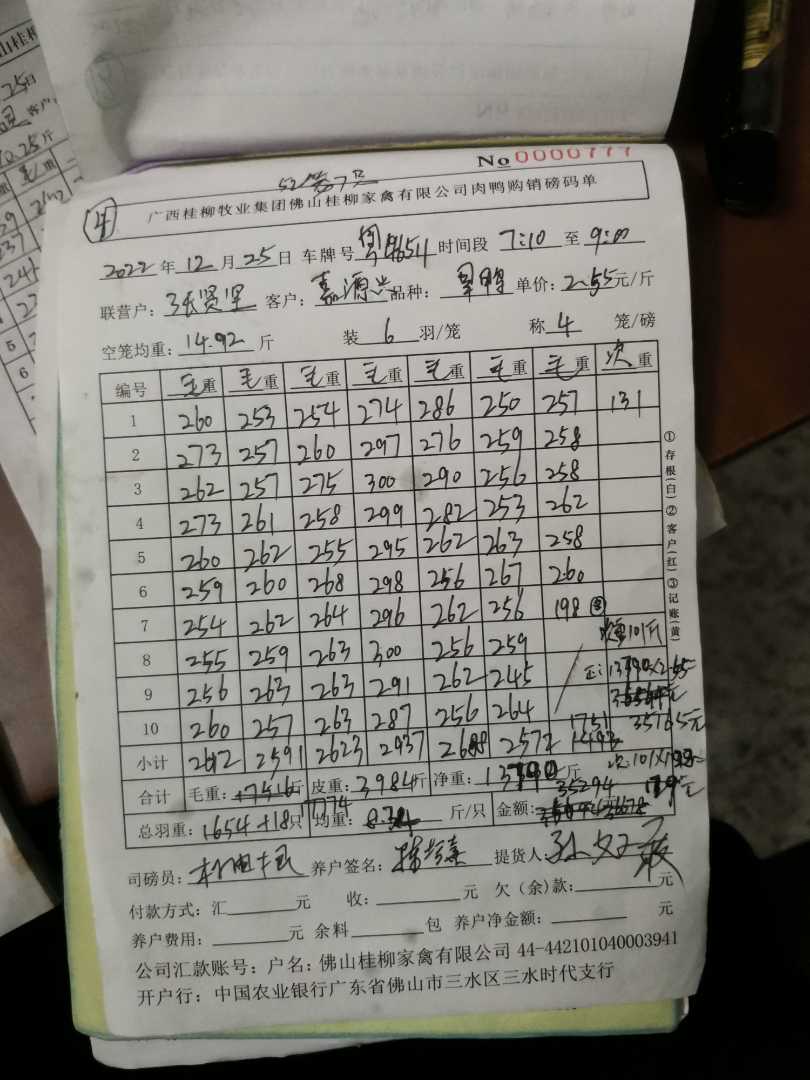 No 0000777
④
广西桂柳牧业集团佛山桂柳家禽有限公司肉鸭购销磅码单
2022年12月25日 车牌号 时间段 7:10 至 9:00
联营户: 张贤坚 客户: 嘉源兴 品种: 单价: 2.55元/斤
空笼均重: 14.92 斤 装 6 羽/笼 称 4 笼/磅
编号 毛重 毛重 毛重 毛重 毛重 毛重 毛重 次重
1 260 253 254 274 286 250 257 131
2 273 257 260 297 276 259 258
3 262 257 275 300 290 256 258
4 273 261 258 299 282 253 262
5 260 262 255 295 262 263 258
6 259 260 268 298 256 267 260
7 254 262 264 296 262 256 198
8 255 259 263 300 256 259
9 256 263 263 291 262 245
10 260 257 263 287 256 264 1751
小计 2612 2591 2623 2937 2688 2572
合计 毛重: 斤 皮重: 3984斤 净重: 13790斤
17774 35294
总羽重: 1654+18只 均重: 斤/只 金额:
司磅员: 养户签名: 提货人:
付款方式: 汇 元 收: 元 欠(余)款: 元
养户费用: 元 余料 包 养户净金额: 元
公司汇款账号: 户名: 佛山桂柳家禽有限公司 44-442101040003941
开户行: 中国农业银行广东省佛山市三水区三水时代支行
①存根(白)②客户(红)③记账(黄)